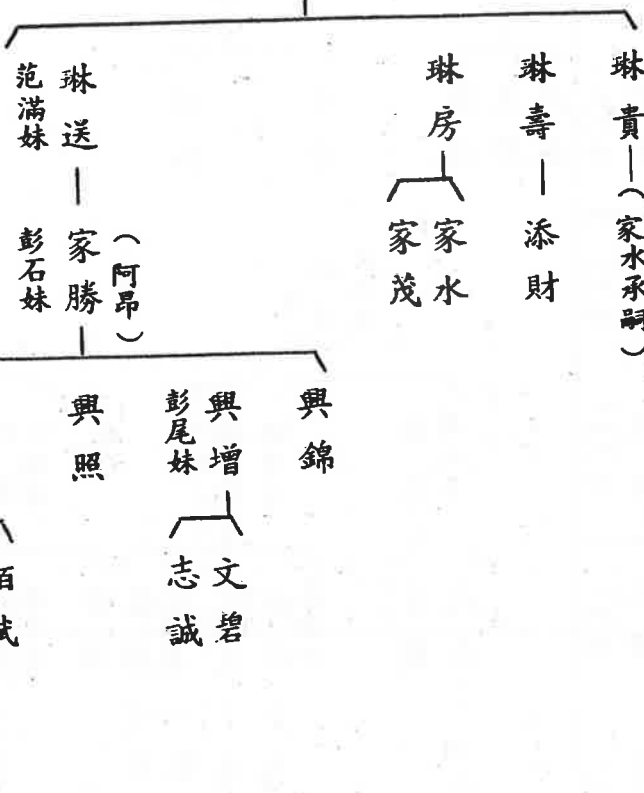 琳貴
（家水承嗣）
琳壽
添財
琳房
家水
家茂
琳送
范滿妹
（阿昂）
家勝
彭石妹
興錦
興增
彭尾妹
興照
文碧
志誠